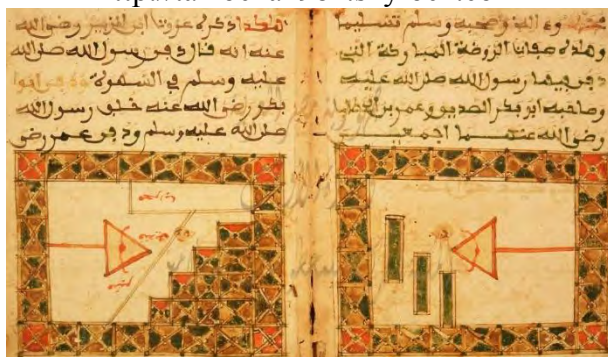 وعلى اله وصحبه وسلم تسليما
وهذه صفة الروضة المباركة التي
دفن فيها رسول الله صلى الله عليه
وصاحبه ابو بكر الصديق وعمر بن الخطاب
رضي الله عنهما اجمعين
هكذا ذكره عروة ابن الزبير رضي الله
عنه انه قال دفن رسول الله صلى الله
عليه وسلم في السهوة ودفن ابو
بكر رضي الله عنه خلف رسول الله
صلى الله عليه وسلم ودفن عمر رضي